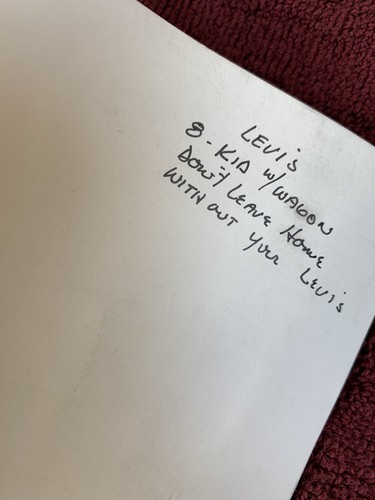 LEVI'S
8-KID W/WAGON
DON'T LEAVE HOME
WITHOUT YOUR LEVI'S